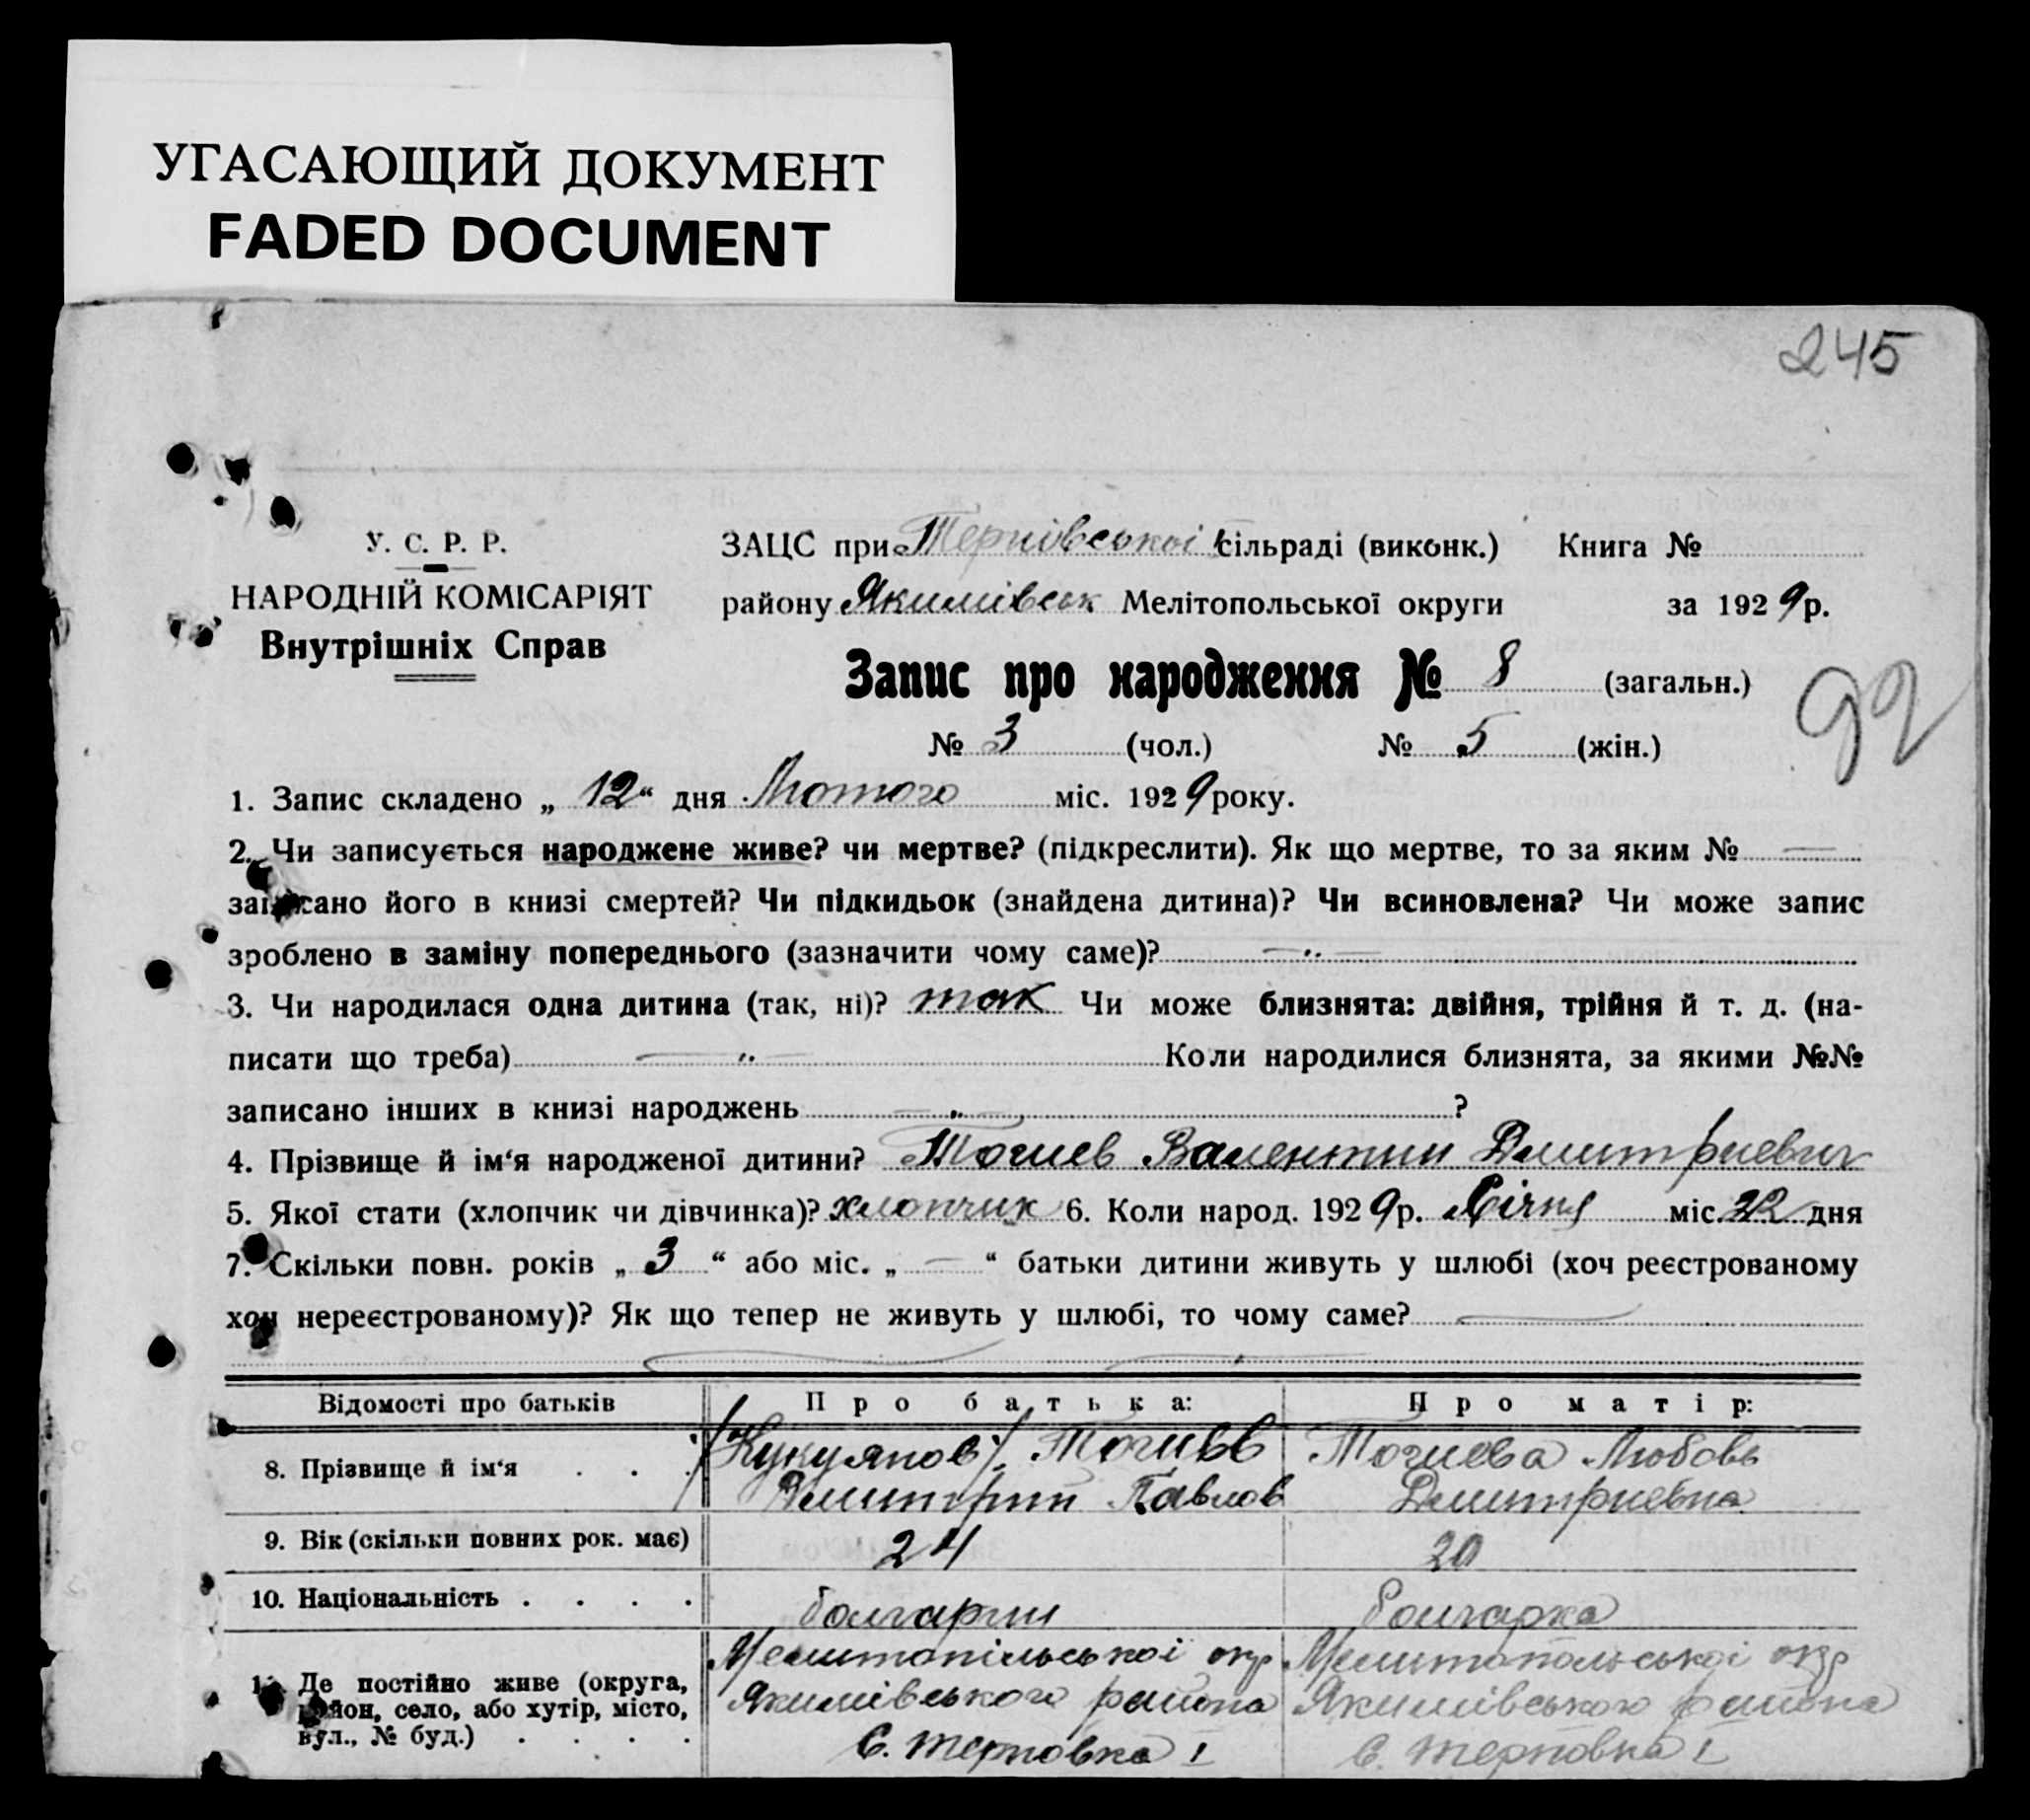 УГАСАЮЩИЙ ДОКУМЕНТ
FADED DOCUMENT
245
У. С. Р. Р.
НАРОДНІЙ КОМІСАРІЯТ
Внутрішніх Справ
ЗАЦС при Терновської сільраді (виконк.) Книга №
району Якимівськ Мелітопольської округи за 1929 р.
Запис про народження № 8 (загальн.)
92
№ 3 (чол.) № 5 (жін.)
1. Запис складено „ 12 “ дня Лютого міс. 1929 року.
2. Чи записується народжене живе? чи мертве? (підкреслити). Як що мертве, то за яким № —
записано його в книзі смертей? Чи підкидьок (знайдена дитина)? Чи всиновлена? Чи може запис
зроблено в заміну попереднього (зазначити чому саме)? — „ —
3. Чи народилася одна дитина (так, ні)? так Чи може близнята: двійня, трійня й т. д. (на-
писати що треба) — „ — Коли народилися близнята, за якими №№
записано інших в книзі народжень — „ — ?
4. Прізвище й ім‘я народженої дитини? Точиев Валентин Дмитриевич
5. Якої стати (хлопчик чи дівчинка)? хлопчик 6. Коли народ. 1929 р. Січня міс. 22 дня
7. Скільки повн. років „ 3 “ або міс. „ — “ батьки дитини живуть у шлюбі (хоч реєстрованому
хоч нереєстрованому)? Як що тепер не живуть у шлюбі, то чому саме? —
Відомості про батьків Про батька: Про матір:
8. Прізвище й ім‘я . . . /Кукулянов/. Точиев Точиева Любовь
Дмитрий Павлов Дмитриевна
9. Вік (скільки повних рок. має) 24 20
10. Національність . . . . болгарин болгарка
11. Де постійно живе (округа, Мелитопільської окр. Мелитопольської окр
район, село, або хутір, місто, Якимівського района Якимівського района
вул., № буд.) . . . . С. Терновка I С. Терновка I